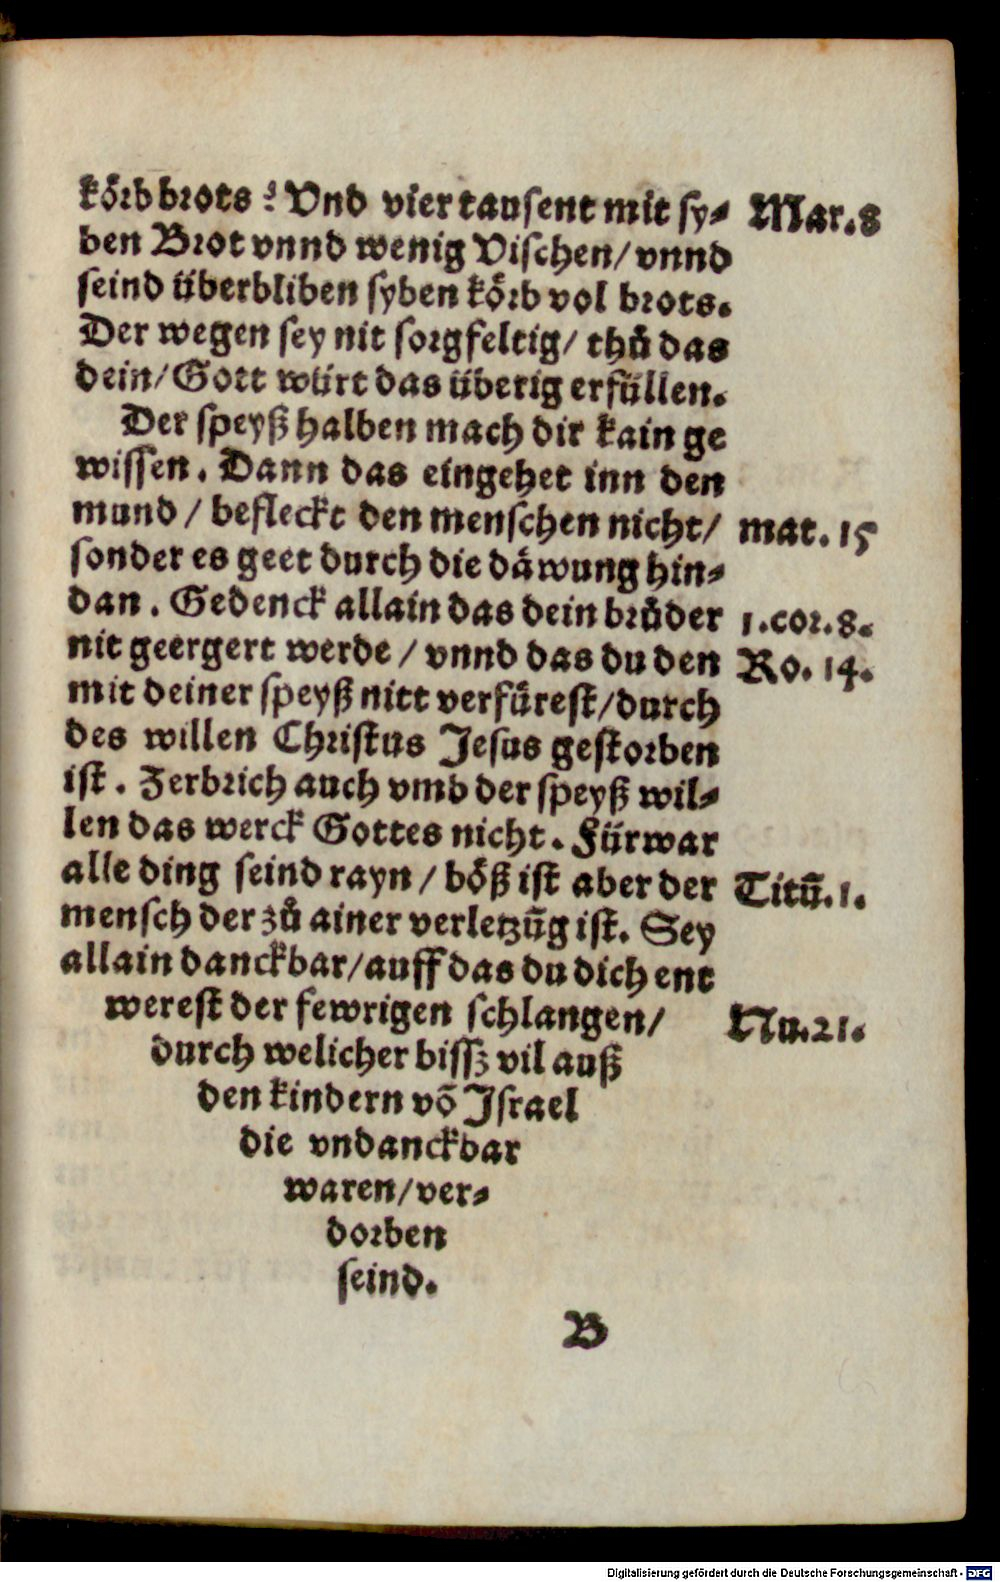 koͤrb brots? Vnd vier tausent mit sy⸗ Mar. 8
ben Brot vnnd wenig Vischen/ vnnd
seind überbliben syben koͤrb vol brots.
Der wegen sey nit sorgfeltig/ thů das
dein/ Gott würt das überig erfüllen.
Der speyß halben mach dir kain ge
wissen. Dann das eingehet inn den
mund / befleckt den menschen nicht/ mat. 15
sonder es geet durch die daͤwung hin⸗
dan. Gedenck allain das dein brůder 1. cor. 8.
nit geergert werde / vnnd das du den Ro. 14.
mit deiner speyß nitt verfürest/ durch
des willen Christus Jesus gestorben
ist. Zerbrich auch vmb der speyß wil⸗
len das werck Gottes nicht. Fürwar
alle ding seind rayn / boͤß ist aber der Titū. 1.
mensch der zů ainer verletzūg ist. Sey
allain danckbar/ auff das du dich ent
werest der fewrigen schlangen/ Nu. 21.
durch welicher bissz vil auß
den kindern vō Israel
die vndanckbar
waren/ ver⸗
dorben
seind.
B
Digitalisierung gefördert durch die Deutsche Forschungsgemeinschaft - DFG